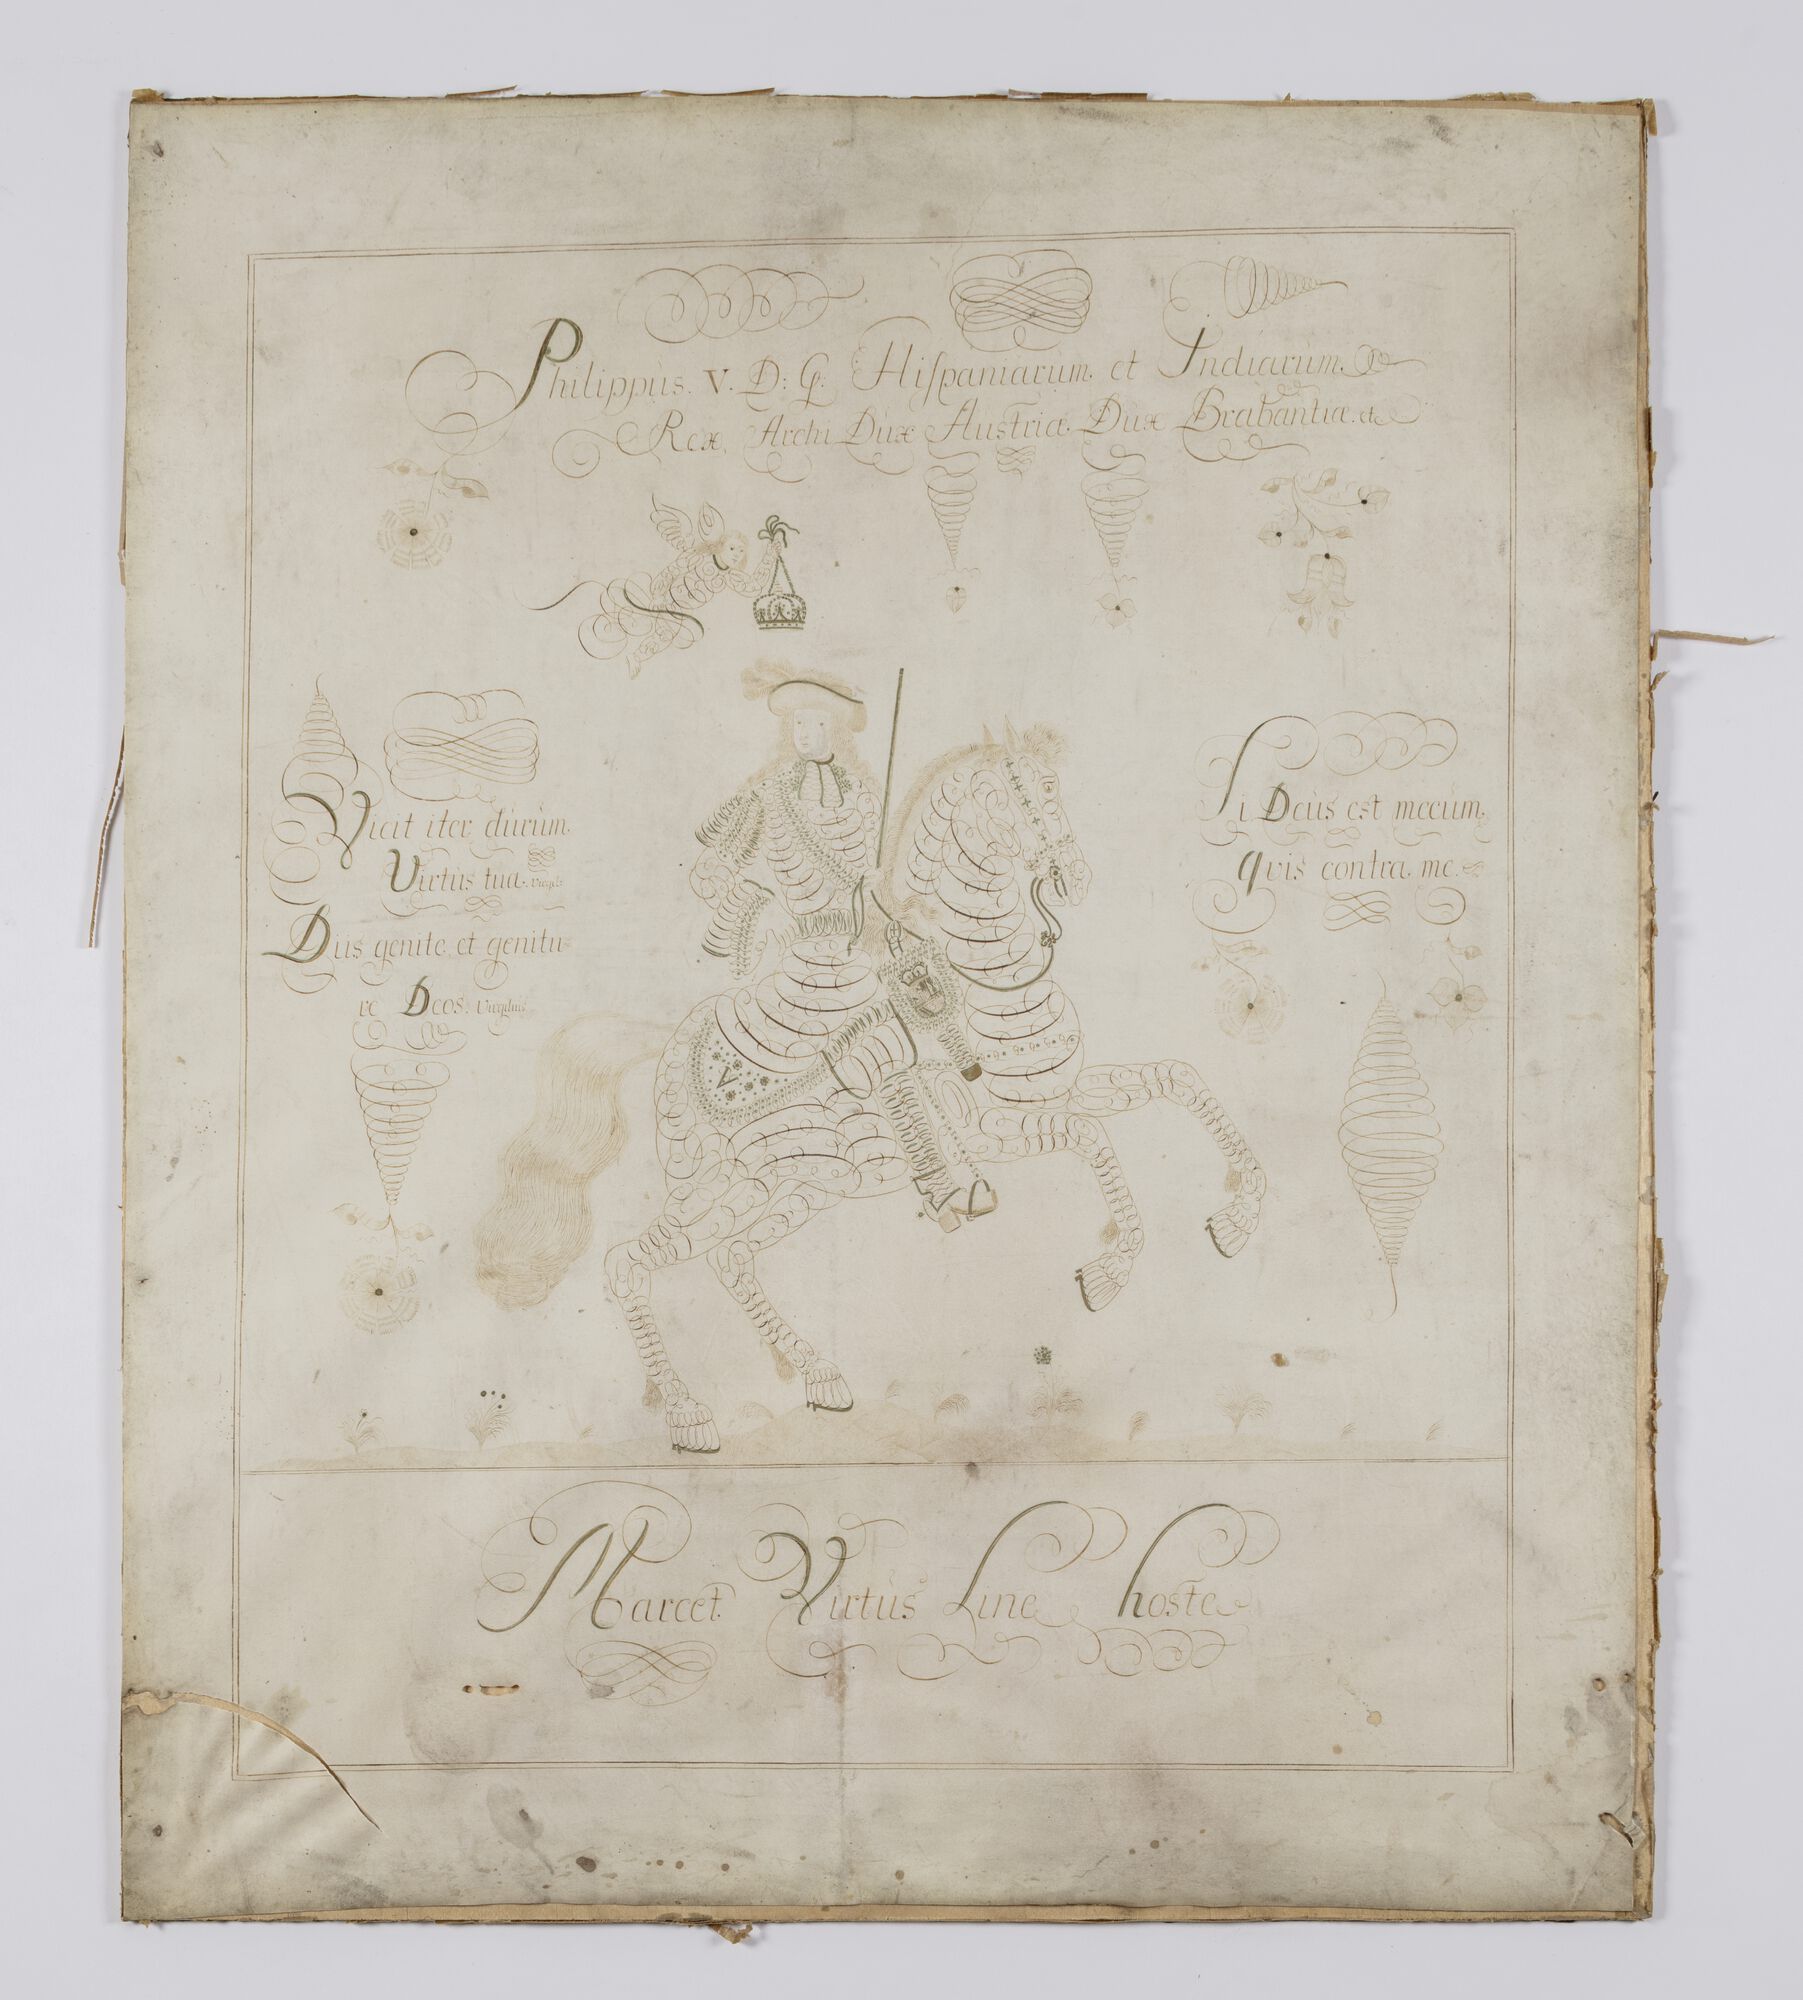 Philippus. V. D: G: Hiſpaniarum. et Indiarum.
Rex, Archi Dux Austriæ. Dux Brabantiæ. etc
Vicit iter durum.
Virtus tua. Virgil:
Diis genite. et genitu=
re Deos. Virgilius
Si Deus est mecum.
quis contra. me.
V
Marcet Virtus ſine hoste